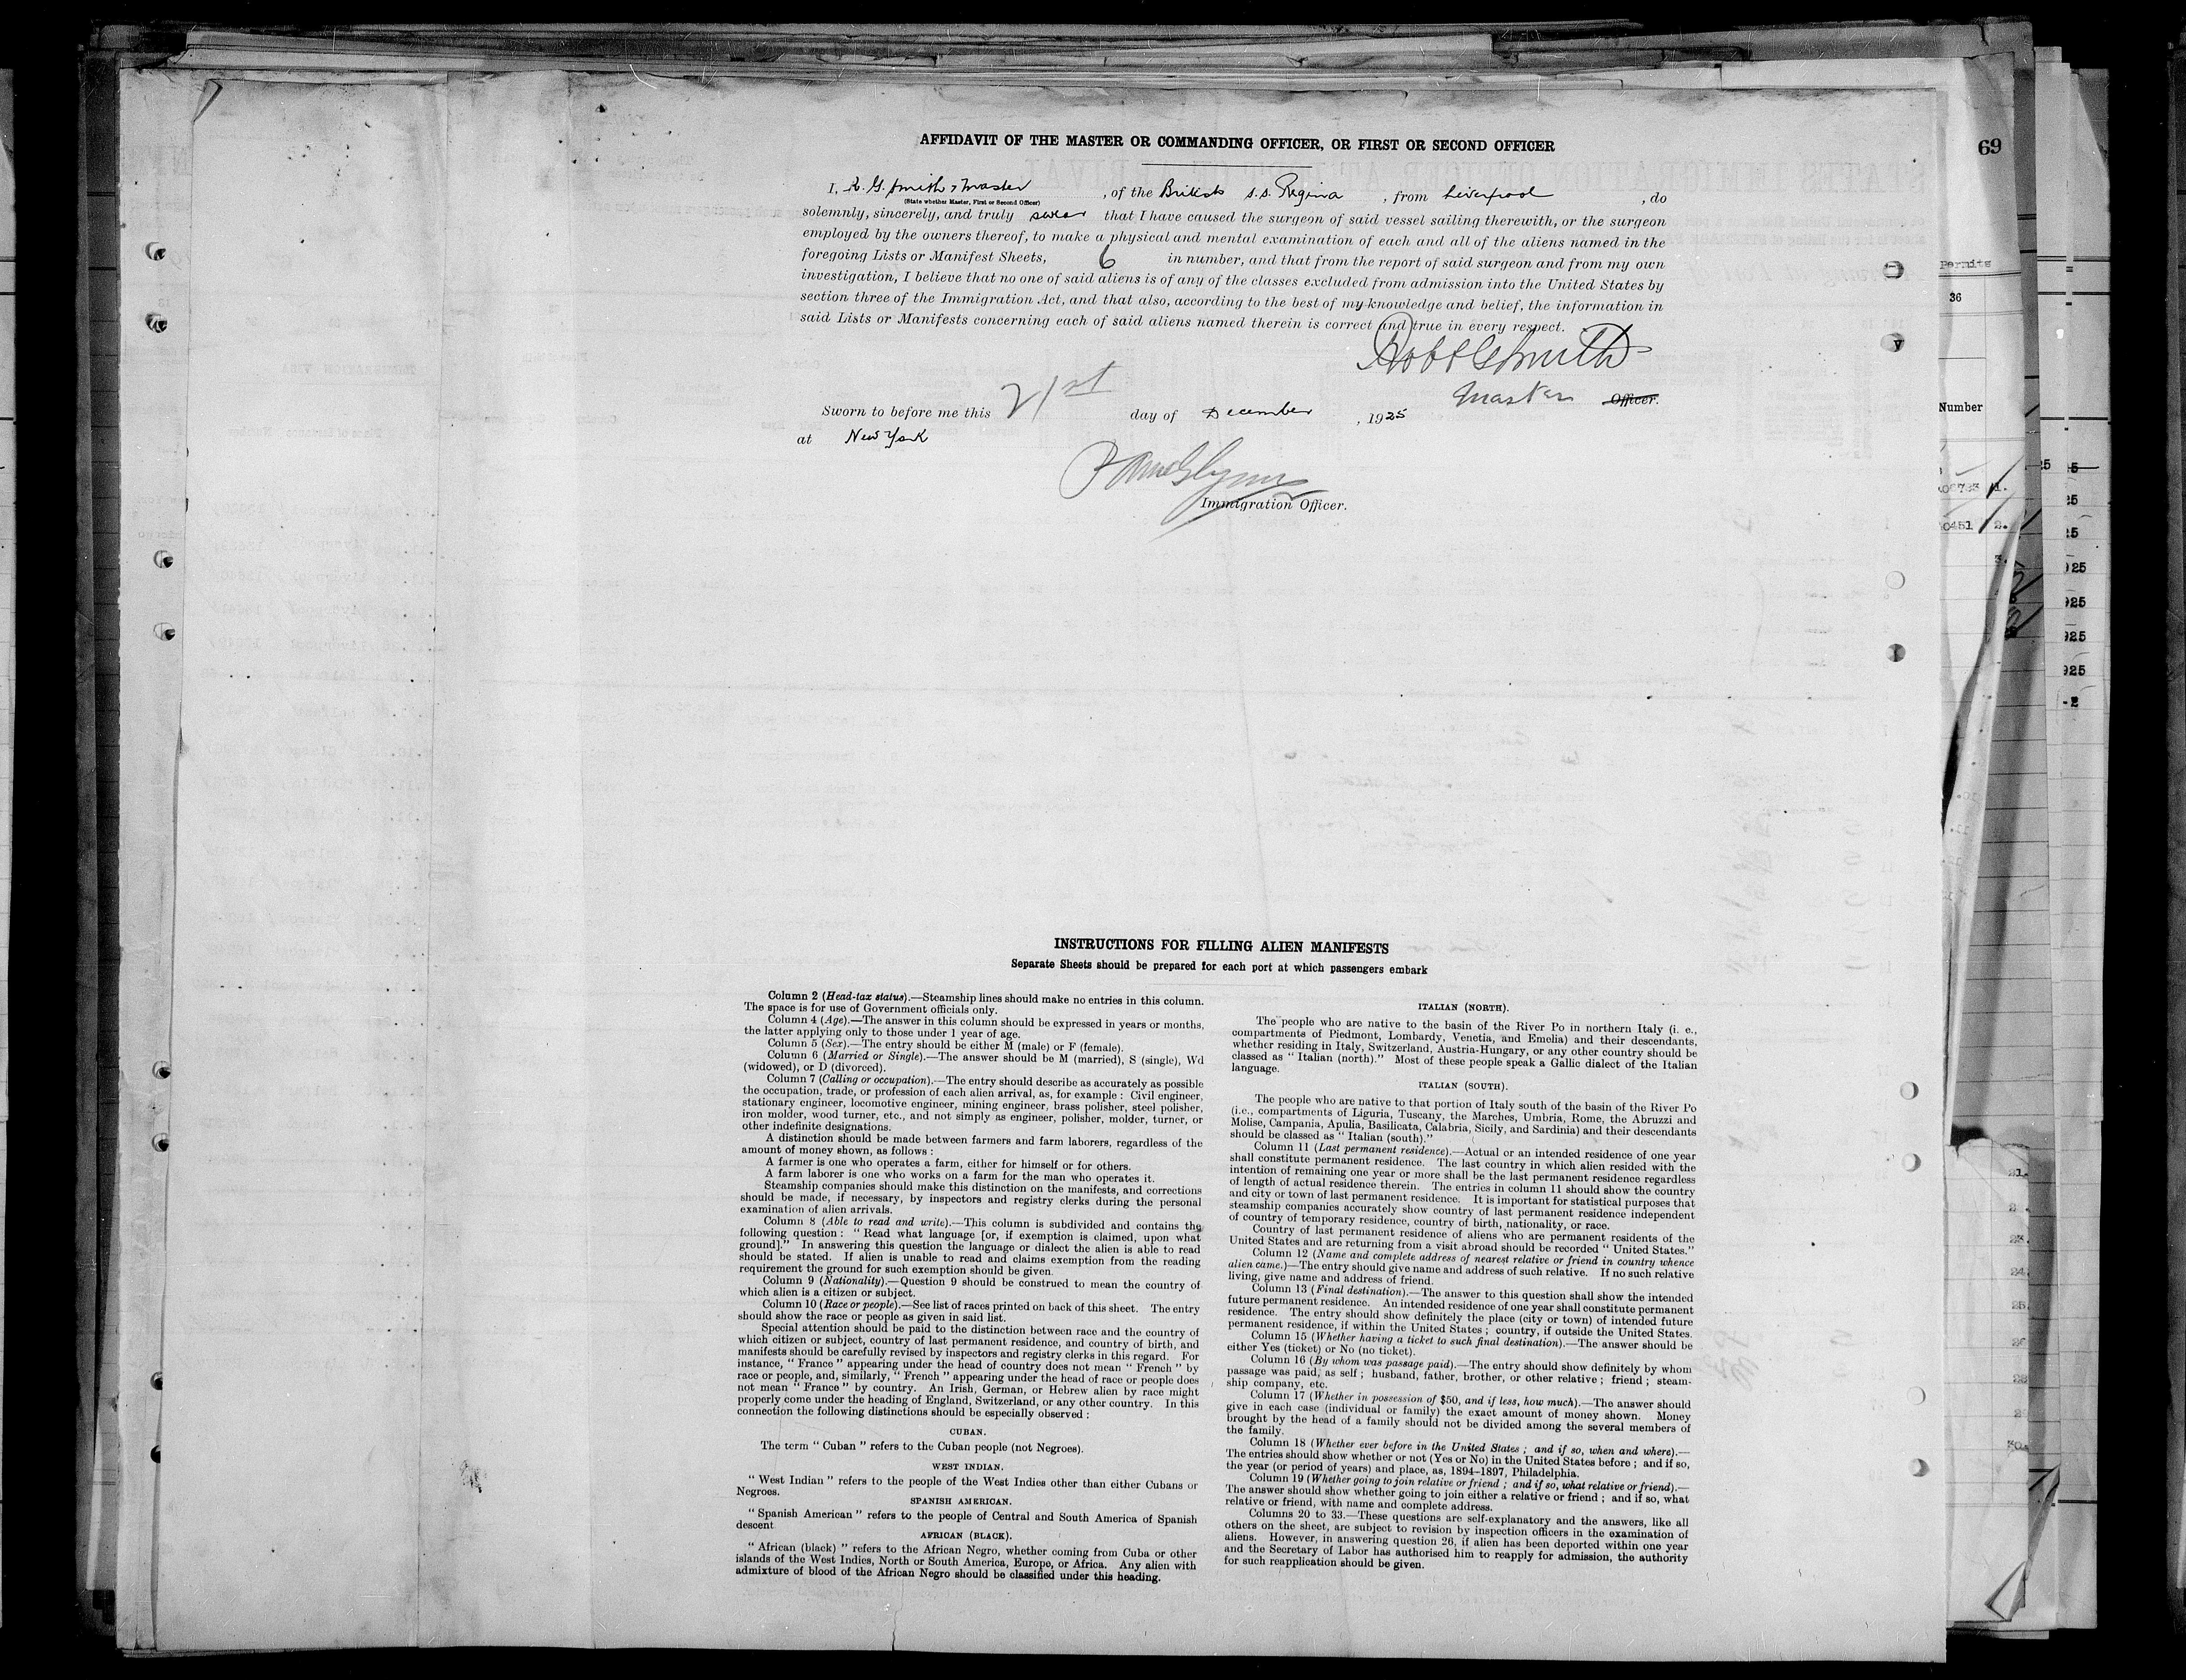 AFFIDAVIT OF THE MASTER OR COMMANDING OFFICER, OR FIRST OR SECOND OFFICER
69
I, R. G. Smith, Master, of the British s.s. Regina, from Liverpool, do
(State whether Master, First or Second Officer)
solemnly, sincerely, and truly swear that I have caused the surgeon of said vessel sailing therewith, or the surgeon
employed by the owners thereof, to make a physical and mental examination of each and all of the aliens named in the
foregoing Lists or Manifest Sheets, 6 in number, and that from the report of said surgeon and from my own
investigation, I believe that no one of said aliens is of any of the classes excluded from admission into the United States by
section three of the Immigration Act, and that also, according to the best of my knowledge and belief, the information in
said Lists or Manifests concerning each of said aliens named therein is correct and true in every respect.
Robt G Smith
Master Officer.
Sworn to before me this 21st day of December, 1925
at New York
Immigration Officer.
Permits
36
Number
INSTRUCTIONS FOR FILLING ALIEN MANIFESTS
Separate Sheets should be prepared for each port at which passengers embark
Column 2 (Head-tax status).—Steamship lines should make no entries in this column.
The space is for use of Government officials only.
Column 4 (Age).—The answer in this column should be expressed in years or months,
the latter applying only to those under 1 year of age.
Column 5 (Sex).—The entry should be either M (male) or F (female).
Column 6 (Married or Single).—The answer should be M (married), S (single), Wd
(widowed), or D (divorced).
Column 7 (Calling or occupation).—The entry should describe as accurately as possible
the occupation, trade, or profession of each alien arrival, as, for example : Civil engineer,
stationary engineer, locomotive engineer, mining engineer, brass polisher, steel polisher,
iron molder, wood turner, etc., and not simply as engineer, polisher, molder, turner, or
other indefinite designations.
A distinction should be made between farmers and farm laborers, regardless of the
amount of money shown, as follows :
A farmer is one who operates a farm, either for himself or for others.
A farm laborer is one who works on a farm for the man who operates it.
Steamship companies should make this distinction on the manifests, and corrections
should be made, if necessary, by inspectors and registry clerks during the personal
examination of alien arrivals.
Column 8 (Able to read and write).—This column is subdivided and contains the
following question : “ Read what language [or, if exemption is claimed, upon what
ground].” In answering this question the language or dialect the alien is able to read
should be stated. If alien is unable to read and claims exemption from the reading
requirement the ground for such exemption should be given.
Column 9 (Nationality).—Question 9 should be construed to mean the country of
which alien is a citizen or subject.
Column 10 (Race or people).—See list of races printed on back of this sheet. The entry
should show the race or people as given in said list.
Special attention should be paid to the distinction between race and the country of
which citizen or subject, country of last permanent residence, and country of birth, and
manifests should be carefully revised by inspectors and registry clerks in this regard. For
instance, “ France ” appearing under the head of country does not mean “ French ” by
race or people, and, similarly, “ French ” appearing under the head of race or people does
not mean “ France ” by country. An Irish, German, or Hebrew alien by race might
properly come under the heading of England, Switzerland, or any other country. In this
connection the following distinctions should be especially observed :
CUBAN.
The term “ Cuban ” refers to the Cuban people (not Negroes).
WEST INDIAN.
“ West Indian ” refers to the people of the West Indies other than either Cubans or
Negroes.
SPANISH AMERICAN.
“Spanish American ” refers to the people of Central and South America of Spanish
descent
AFRICAN (BLACK).
“ African (black) ” refers to the African Negro, whether coming from Cuba or other
islands of the West Indies, North or South America, Europe, or Africa. Any alien with
admixture of blood of the African Negro should be classified under this heading.
ITALIAN (NORTH).
The people who are native to the basin of the River Po in northern Italy (i. e.,
compartments of Piedmont, Lombardy, Venetia, and Emelia) and their descendants,
whether residing in Italy, Switzerland, Austria-Hungary, or any other country should be
classed as “ Italian (north).” Most of these people speak a Gallic dialect of the Italian
language.
ITALIAN (SOUTH).
The people who are native to that portion of Italy south of the basin of the River Po
(i.e., compartments of Liguria, Tuscany, the Marches, Umbria, Rome, the Abruzzi and
Molise, Campania, Apulia, Basilicata, Calabria, Sicily, and Sardinia) and their descendants
should be classed as “ Italian (south).”
Column 11 (Last permanent residence).—Actual or an intended residence of one year
shall constitute permanent residence. The last country in which alien resided with the
intention of remaining one year or more shall be the last permanent residence regardless
of length of actual residence therein. The entries in column 11 should show the country
and city or town of last permanent residence. It is important for statistical purposes that
steamship companies accurately show country of last permanent residence independent
of country of temporary residence, country of birth, nationality, or race.
Country of last permanent residence of aliens who are permanent residents of the
United States and are returning from a visit abroad should be recorded “ United States.”
Column 12 (Name and complete address of nearest relative or friend in country whence
alien came.)—The entry should give name and address of such relative. If no such relative
living, give name and address of friend.
Column 13 (Final destination).—The answer to this question shall show the intended
future permanent residence. An intended residence of one year shall constitute permanent
residence. The entry should show definitely the place (city or town) of intended future
permanent residence, if within the United States ; country, if outside the United States.
Column 15 (Whether having a ticket to such final destination).—The answer should be
either Yes (ticket) or No (no ticket).
Column 16 (By whom was passage paid).—The entry should show definitely by whom
passage was paid, as self ; husband, father, brother, or other relative ; friend ; steam-
ship company, etc.
Column 17 (Whether in possession of $50, and if less, how much).—The answer should
give in each case (individual or family) the exact amount of money shown. Money
brought by the head of a family should not be divided among the several members of
the family.
Column 18 (Whether ever before in the United States ; and if so, when and where).—
The entries should show whether or not (Yes or No) in the United States before ; and if so,
the year (or period of years) and place, as, 1894-1897, Philadelphia.
Column 19 (Whether going to join relative or friend ; and if so, what relative or friend).—
The answer should show whether going to join either a relative or friend ; and if so, what
relative or friend, with name and complete address.
Columns 20 to 33.—These questions are self-explanatory and the answers, like all
others on the sheet, are subject to revision by inspection officers in the examination of
aliens. However, in answering question 26, if alien has been deported within one year
and the Secretary of Labor has authorised him to reapply for admission, the authority
for such reapplication should be given.